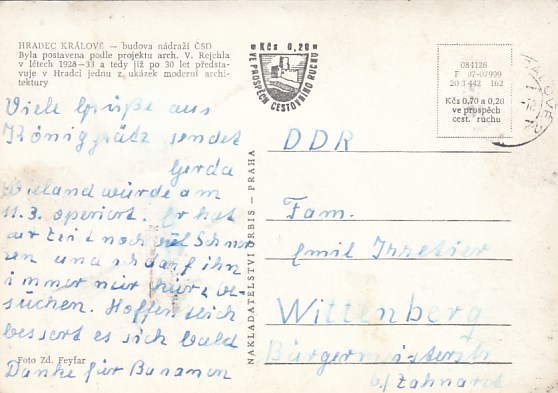 HRADEC KRÁLOVÉ — budova nádraží ČSD
Byla postavena podle projektu arch. V. Rejchla
v létech 1928–33 a tedy již po 30 let představuje
v Hradci jednu z ukázek moderní architektury
Kčs 0,20
VE PROSPĚCH CESTOVNÍHO RUCHU
084126
F 07-07999
20 3 442 162
Kčs 0,70 a 0,20
ve prospěch
cest. ruchu
Viele Grüße aus
Königgrätz sendet
Gerda
Wieland würde am
11.3. operiert. Er hat
zur Zeit noch viel Schmer
zen und ich darf ihn
immer nur kurz be
suchen. Hoffentlich
bessert es sich bald
Danke für Bananen
Foto Zd. Feyfar
NAKLADATELSTVÍ ORBIS — PRAHA
DDR
Fam.
Emil
Wittenberg
Bürgermeisterstr
b/ Zahnarzt